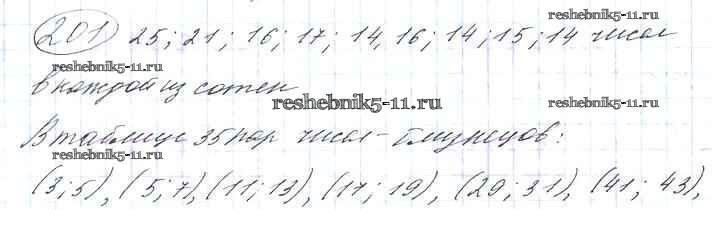 reshebnik5-11.ru
201 25; 21; 16; 17; 14, 16; 14; 15; 14 чисел
в каждой из сотен
reshebnik5-11.ru reshebnik5-11.ru
В таблице 35 пар чисел - близнецов:
reshebnik5-11.ru reshebnik5-11.ru
(3; 5), (5; 7), (11; 13), (17; 19), (29; 31), (41; 43),